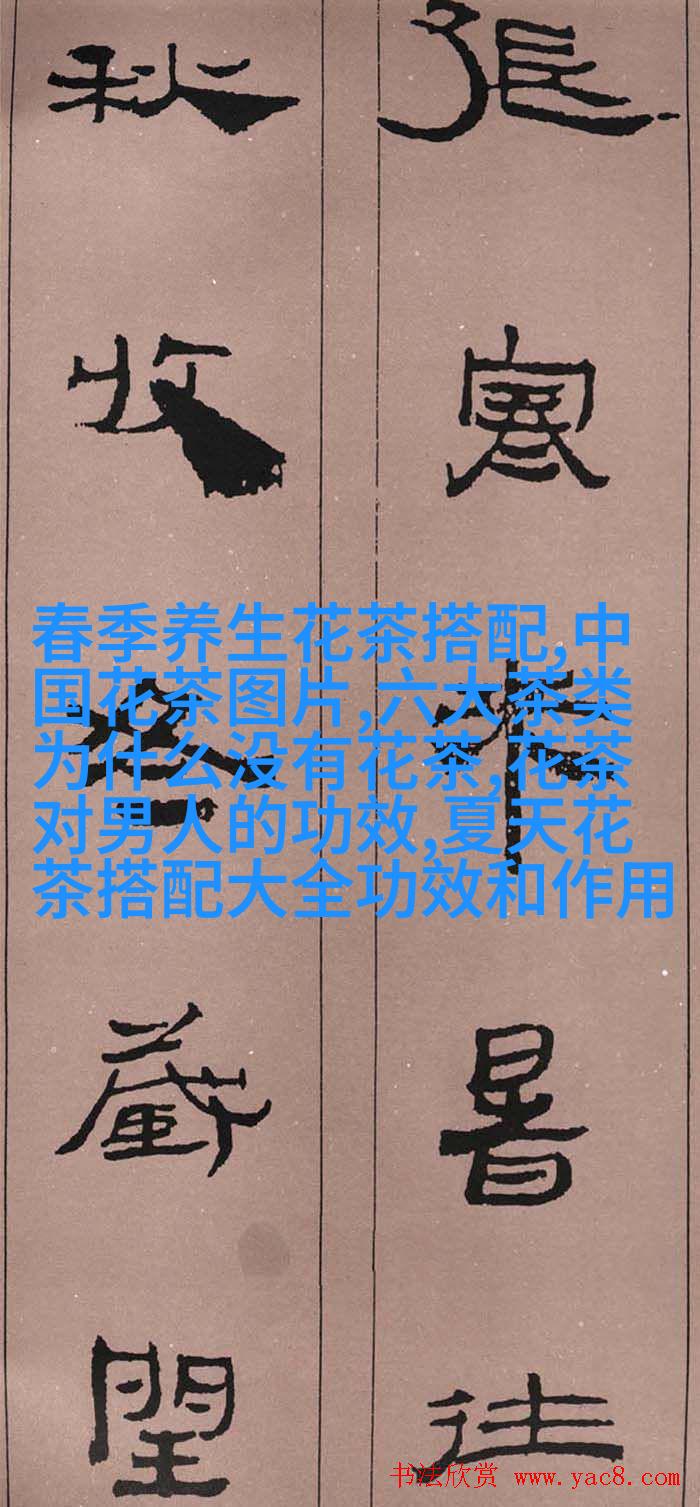 張寒來暑往
秋收冬藏閏
春季养生花茶搭配,中
国花茶图片,六大茶类
为什么没有花茶,花茶
对男人的功效,夏天花
茶搭配大全功效和作用
书法欣赏 www.yac8.com